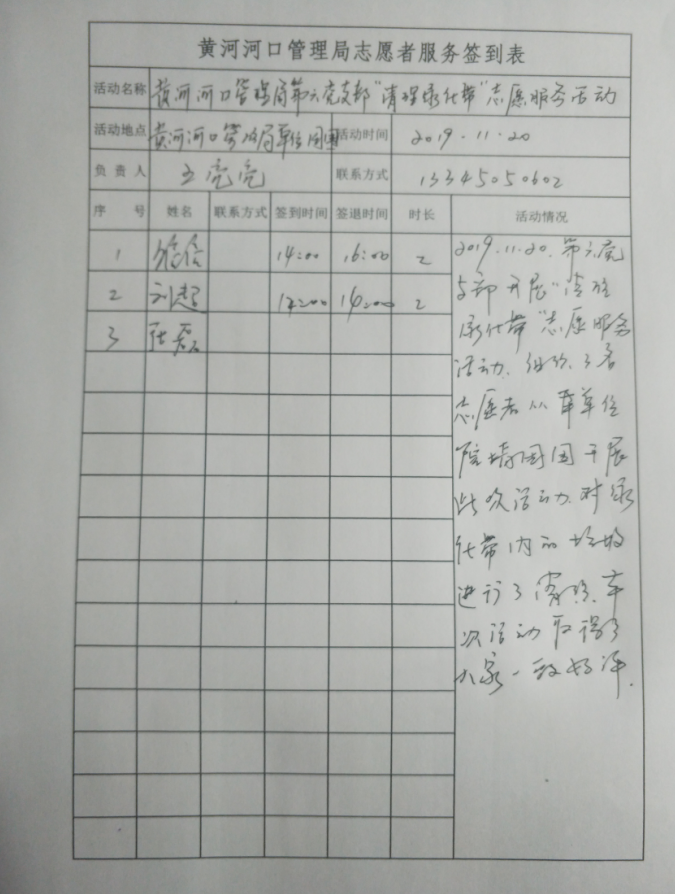 黄河河口管理局志愿者服务签到表
活动名称 黄河河口管理局第六党支部"清理绿化带"志愿服务活动
活动地点 黄河河口管理局单位周围 活动时间 2019.11.20
负责人 王亮亮 联系方式 13345050602
序号 姓名 联系方式 签到时间 签退时间 时长 活动情况
1 14:00 16:00 2
2 刘超 14:00 16:00 2
3 张磊
2019.11.20.第六党
支部开展"清理
绿化带"志愿服务
活动. 3名
志愿者从单位
院墙周围开展
此次活动.对绿
化带内的垃圾
进行了清理.本
次活动取得了
大家一致好评.